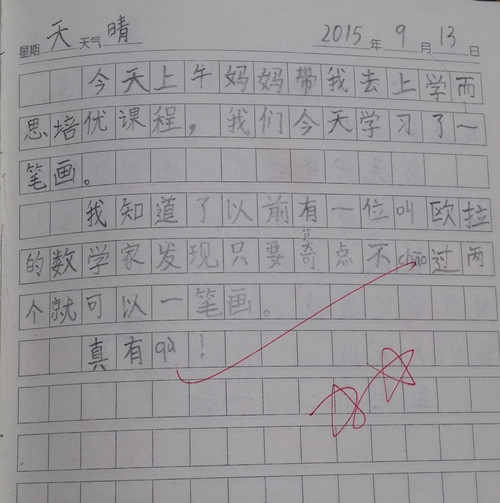 星期 天 天气 晴 2015 年 9 月 13 日
今天上午妈妈带我去上学而
思培优课程，我们今天学习了一
笔画。
我知道了以前有一位叫欧拉
的数学家发现只要奇点不chāo过两
个就可以一笔画。
真有qù！